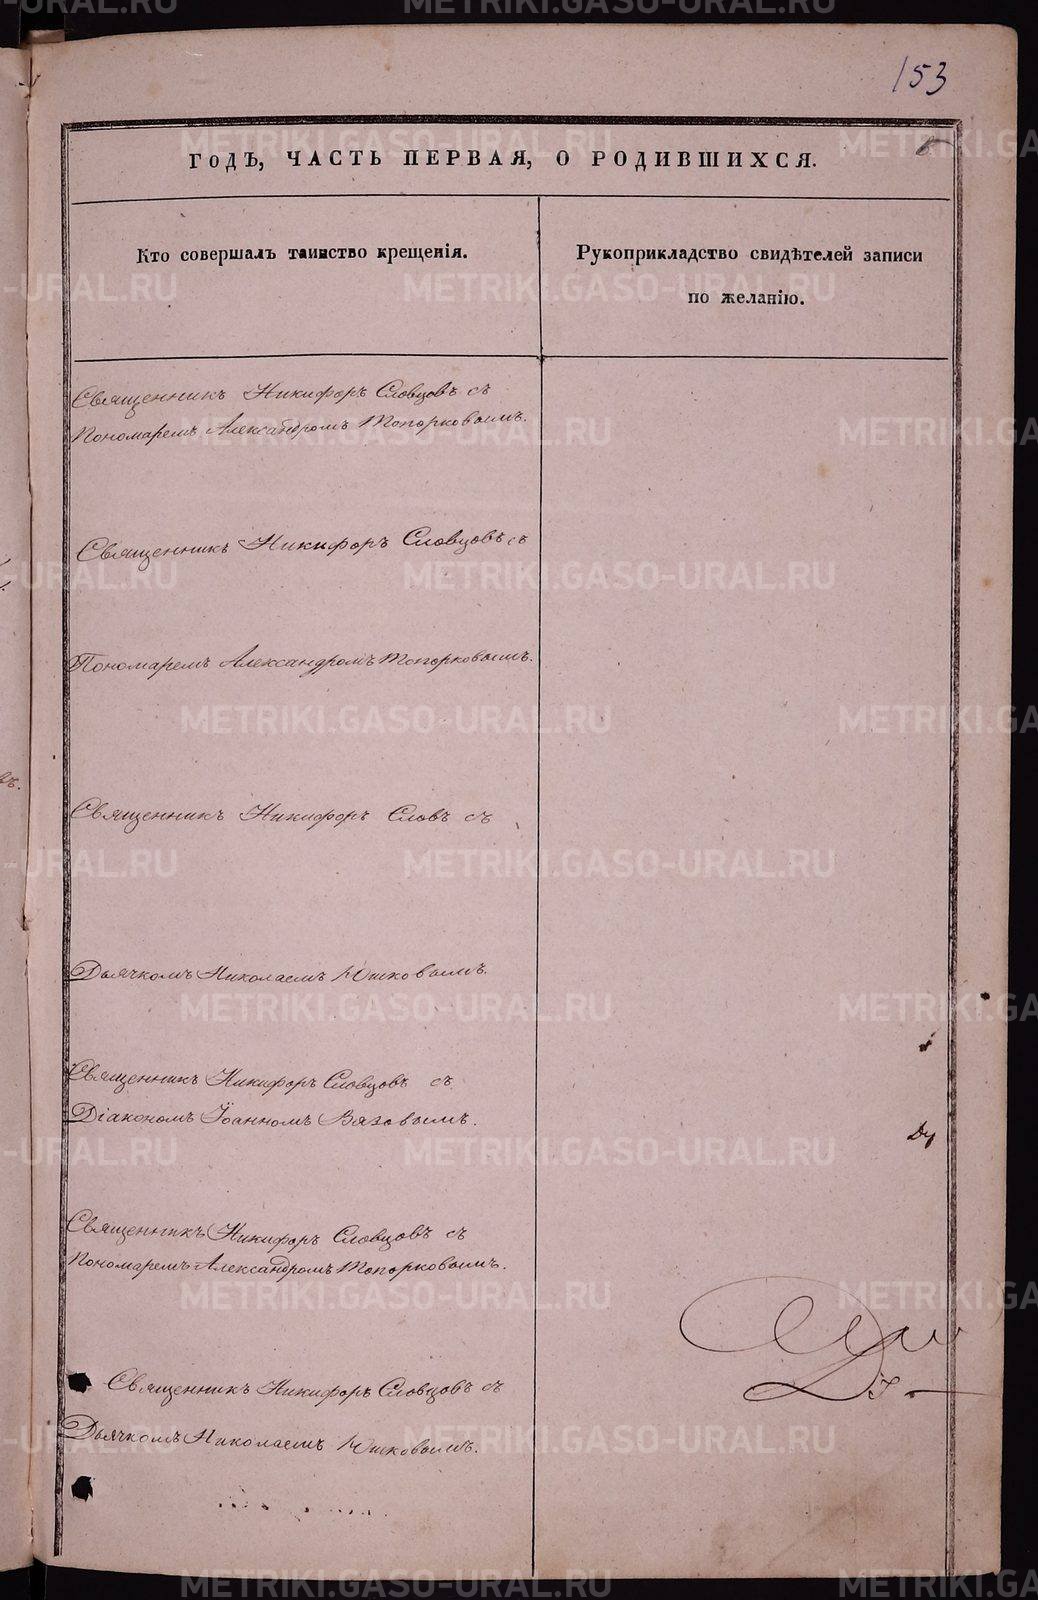 153
6
ГОДЪ, ЧАСТЬ ПЕРВАЯ, О РОДИВШИХСЯ.
Кто совершалъ таинство крещенія.
Рукоприкладство свидѣтелей записи
по желанію.
Священникъ Никифоръ Словцовъ съ
Пономаремъ Александромъ Топорковымъ.
Священникъ Никифоръ Словцовъ съ
Пономаремъ Александромъ Топорковымъ.
Священникъ Никифоръ Словъ съ
Дьячкомъ Николаемъ Юшковымъ.
Священникъ Никифоръ Словцовъ съ
Діакономъ Іоанномъ Вязовымъ.
Священникъ Никифоръ Словцовъ съ
Пономаремъ Александромъ Топорковымъ.
Священникъ Никифоръ Словцовъ съ
Дьячкомъ Николаемъ Юшковымъ.
METRIKI.GASO-URAL.RU